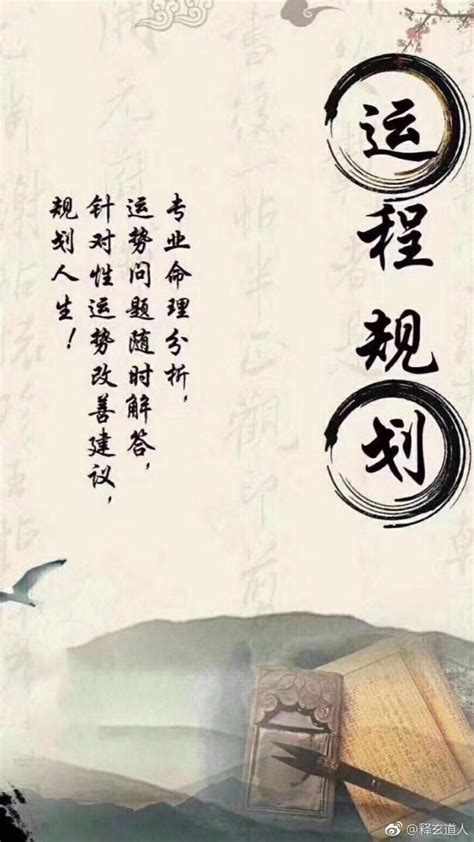 运程规划
专业命理分析，
运势问题随时解答，
针对性运势改善建议，
规划人生！
@释玄道人